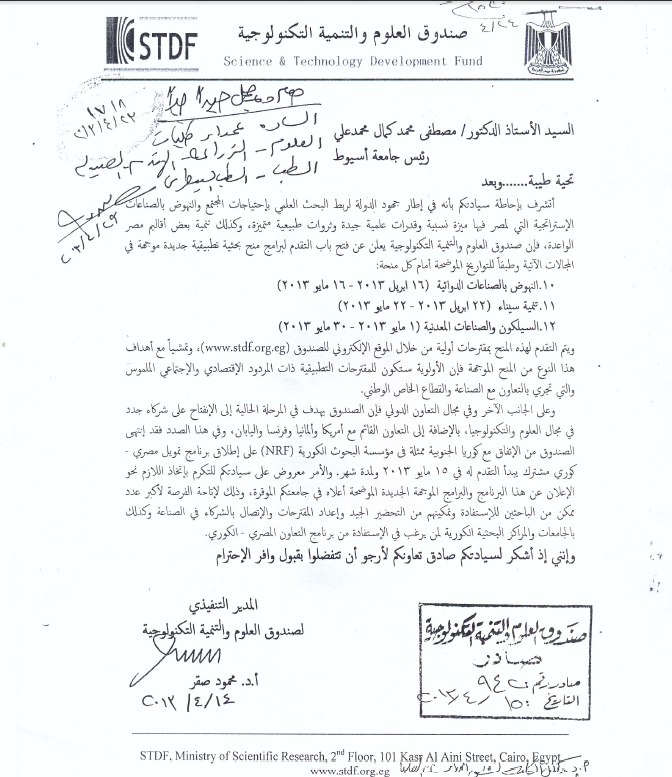 ٤/٢٤
STDF
صندوق العلوم والتنمية التكنولوجية
Science & Technology Development Fund
١٧١٨
هام وعاجل جدا جدا
السادة عمداء كليات
العلوم - الزراعة - الهندسة - الصيدلة
الطب - الطب البيطري
السيد الأستاذ الدكتور/ مصطفى محمد كمال محمد علي
رئيس جامعة أسيوط
تحية طيبة.......وبعد
أتشرف بإحاطة سيادتكم بأنه في إطار جهود الدولة لربط البحث العلمي بإحتياجات المجتمع والنهوض بالصناعات
الإستراتجية التي لمصر فيها ميزة نسبية وقدرات علمية جيدة وثروات طبيعية متميزة، وكذلك تنمية بعض أقاليم مصر
الواعدة، فإن صندوق العلوم والتنمية التكنولوجية يعلن عن فتح باب التقدم لبرامج منح بحثية تطبيقية جديدة موجهة في
المجالات الآتية وطبقاً للتواريخ الموضحة أمام كل منحة:
١٠.النهوض بالصناعات الدوائية (١٦ ابريل ٢٠١٣ - ١٦ مايو ٢٠١٣)
١١.تنمية سيناء (٢٢ ابريل ٢٠١٣ - ٢٢ مايو ٢٠١٣)
١٢.السيلكون والصناعات المعدنية (١ مايو ٢٠١٣ - ٣٠ مايو ٢٠١٣)
ويتم التقدم لهذه المنح بمقترحات أولية من خلال الموقع الإلكتروني للصندوق (www.stdf.org.eg)، وتمشياً مع أهداف
هذا النوع من المنح الموجهة فإن الأولوية ستكون للمقترحات التطبيقية ذات المردود الإقتصادي والإجتماعي الملموس
والتي تجري بالتعاون مع الصناعة والقطاع الخاص الوطني.
وعلى الجانب الآخر وفي مجال التعاون الدولي فإن الصندوق يهدف في المرحلة الحالية إلى الإنفتاح على شركاء جدد
في مجال العلوم والتكنولوجيا، بالإضافة إلى التعاون القائم مع أمريكا وألمانيا وفرنسا واليابان، وفي هذا الصدد فقد إنتهى
الصندوق من الإتفاق مع كوريا الجنوبية ممثلة في مؤسسة البحوث الكورية (NRF) على إطلاق برنامج تمويل مصري -
كوري مشترك يبدأ التقدم له في ١٥ مايو ٢٠١٣ ولمدة شهر. والأمر معروض على سيادتكم للتكرم بإتخاذ اللازم نحو
الإعلان عن هذا البرنامج والبرامج الموجهة الجديدة الموضحة أعلاه في جامعتكم الموقرة، وذلك لإتاحة الفرصة لأكبر عدد
ممكن من الباحثين للإستفادة وتمكينهم من التحضير الجيد وإعداد المقترحات والإتصال بالشركاء في الصناعة وكذلك
بالجامعات والمراكز البحثية الكورية لمن يرغب في الإستفادة من برنامج التعاون المصري - الكوري.
وإنني إذ أشكر لسيادتكم صادق تعاونكم لأرجو أن تتفضلوا بقبول وافر الإحترام
المدير التنفيذي
لصندوق العلوم والتنمية التكنولوجية
أ.د. محمود صقر
٢٠١٣/٤/١٤
صندوق العلوم والتنمية التكنولوجية
صادر
صادر رقم
التاريخ
STDF, Ministry of Scientific Research, 2nd Floor, 101 Kasr Al Aini Street, Cairo, Egypt
www.stdf.org.eg